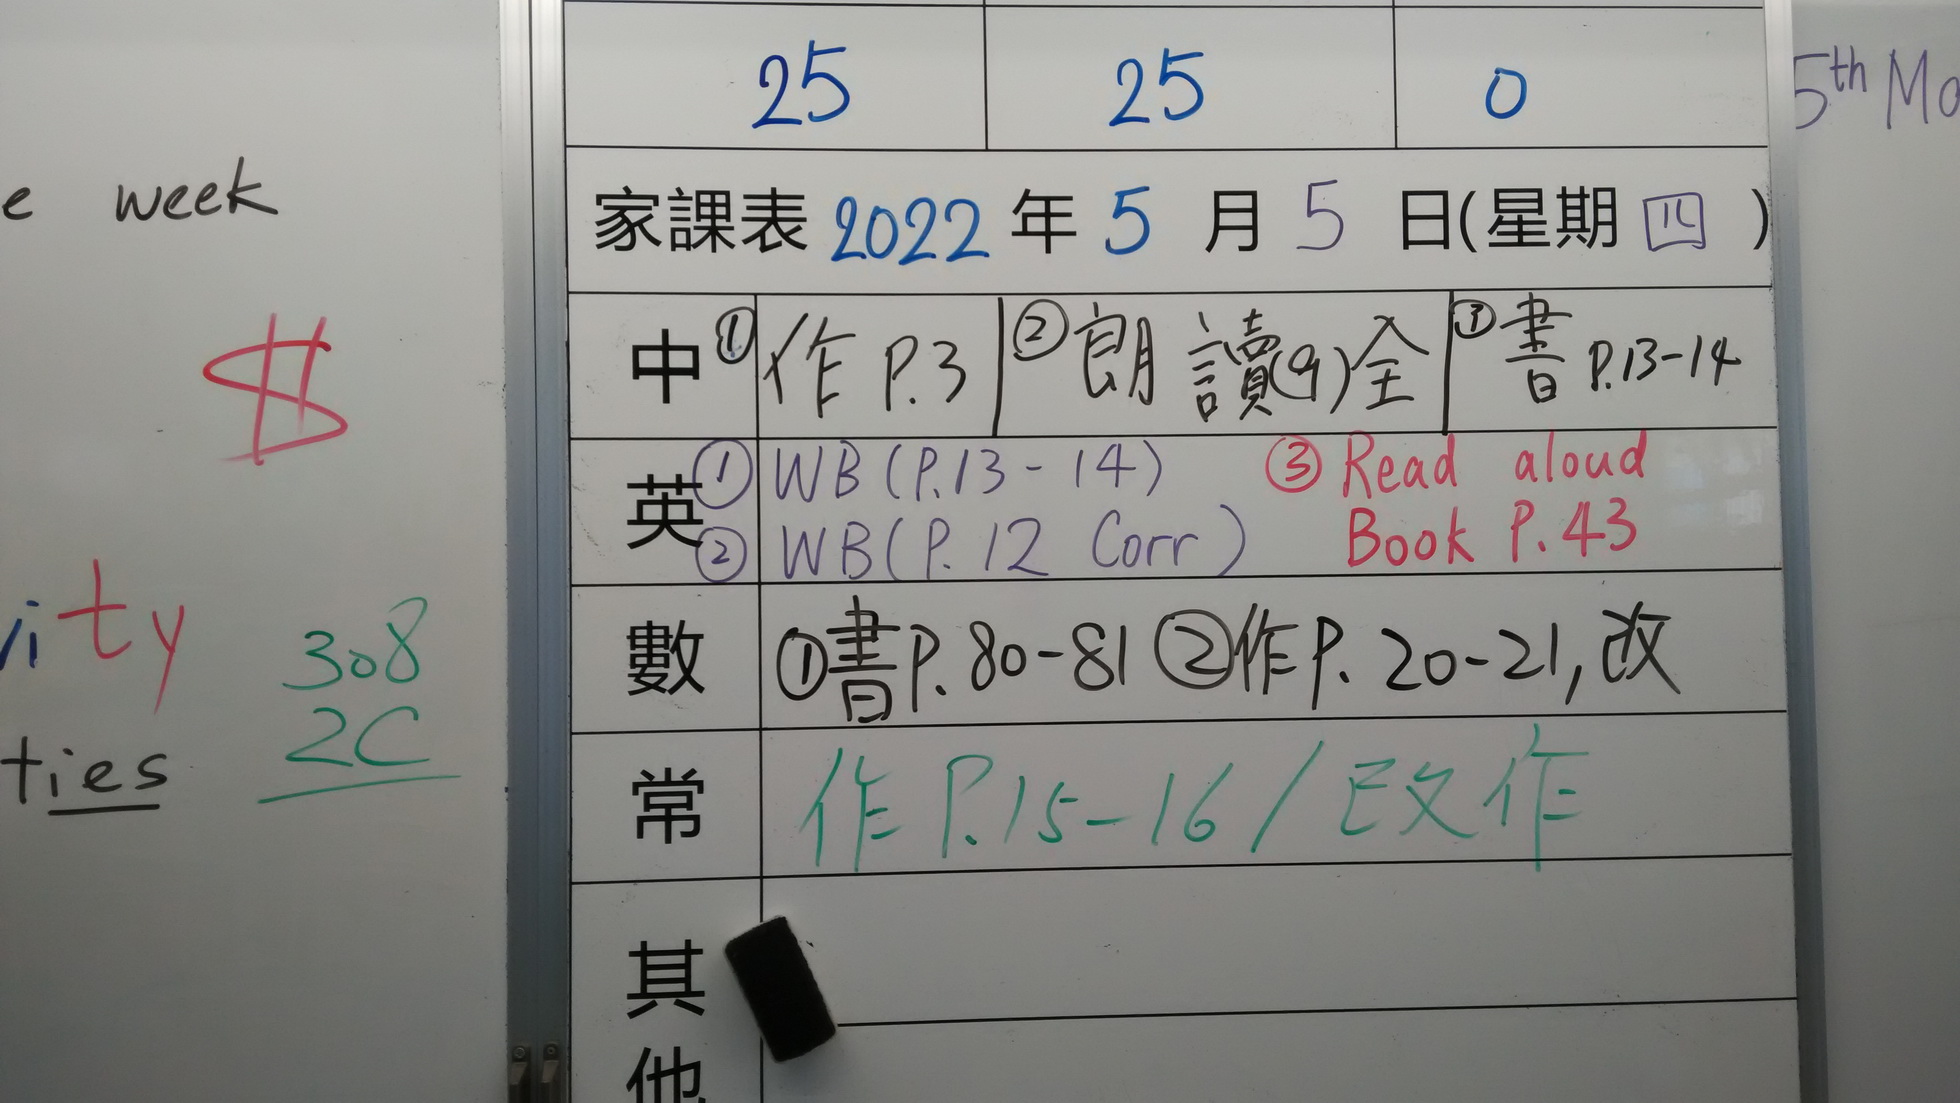 25 25 0
家課表 2022 年 5 月 5 日(星期 四 )
中 ① 作 P.3 ② 朗 讀(9)全 ③ 書 P.13-14
英 ① WB (P.13 - 14) ③ Read aloud
② WB (P. 12 Corr) Book P. 43
數 ①書P. 80-81 ②作P. 20-21, 改
常 作 P.15-16 / 改作
其
他
e week
$
ity
308
ties
2C
5th Mo